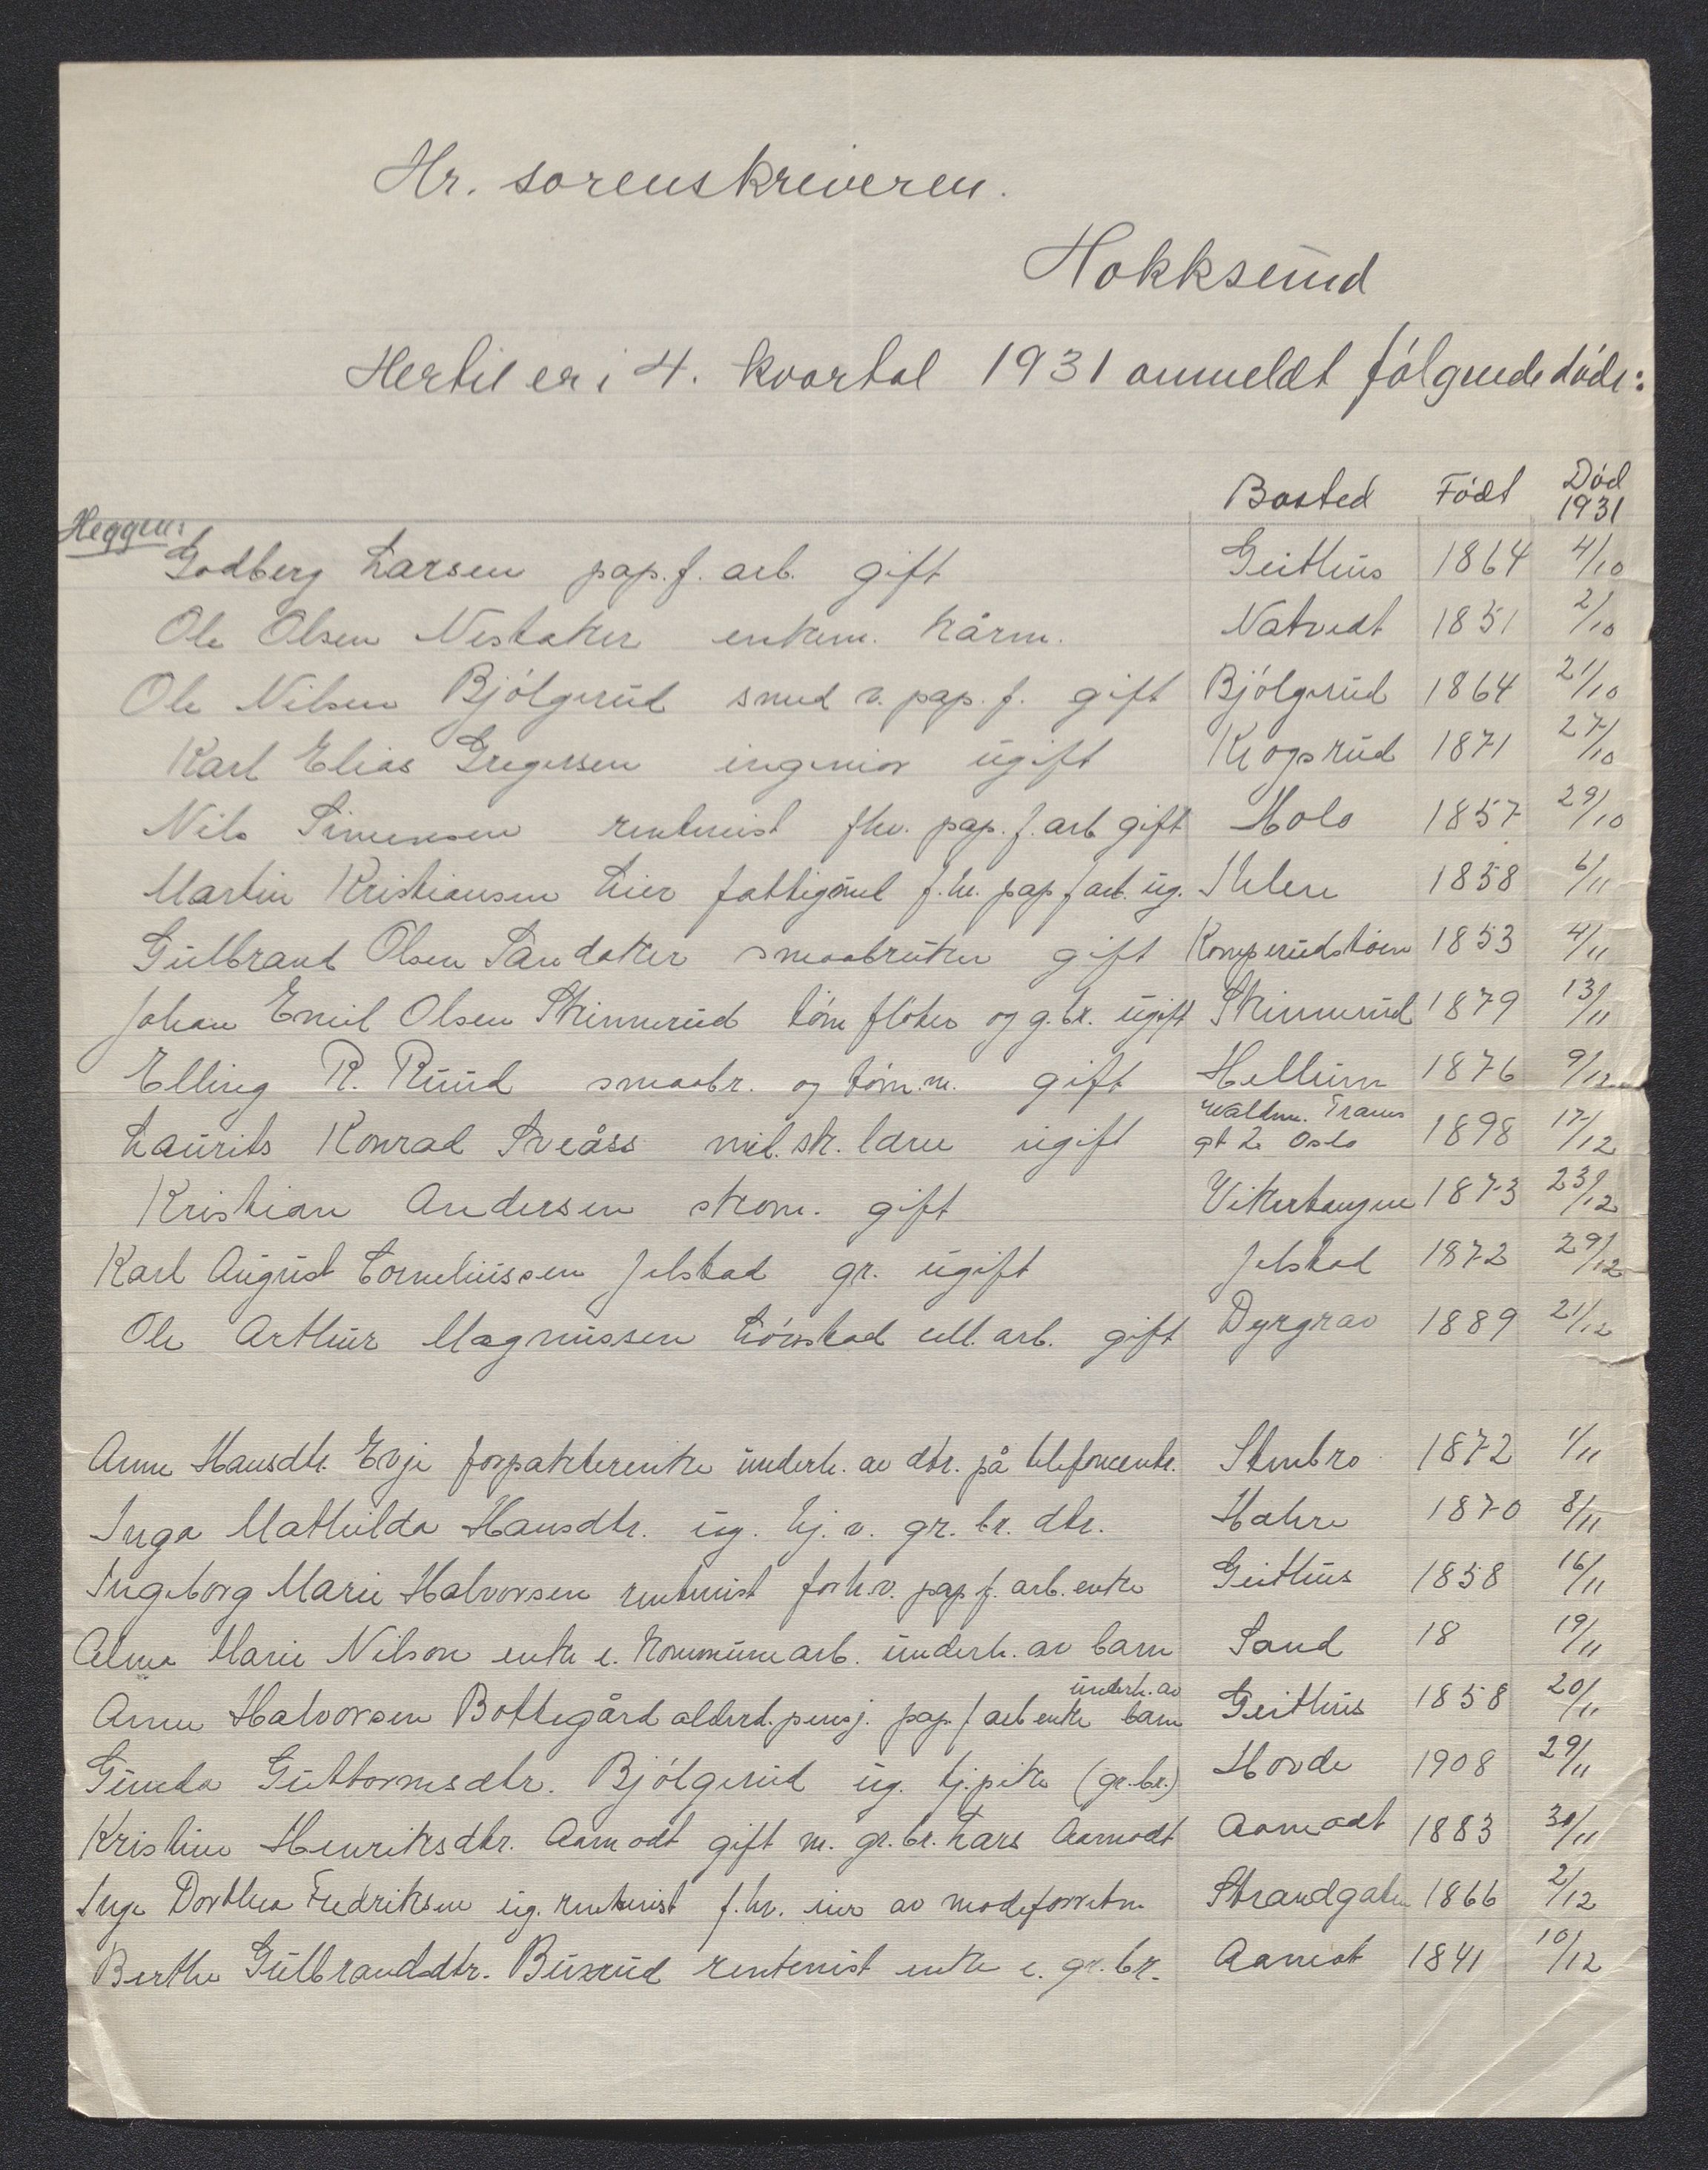 Hr. sorenskriveren.
Hokksund
Hertil er i 4. kvartal 1931 anmeldt følgende døde:
Bosted Født Død 1931
Heggen:
Godberg Larsen pap.f. arb. gift Geithus 1864 4/10
Ole Olsen Nestaker enkem. kårm. Natvedt 1851 2/10
Ole Nilsen Bjølgerud smed v. pap. f. gift Bjølgerud 1864 21/10
Karl Elias Gregersen ingeniør ugift Krogsrud 1871 27/10
Nils Simensen rentenist fhv. pap. f. arb gift Holo 1857 29/10
Martin Kristiansen Lier fattigund f.hv. pap f arb. ug. 1858 6/11
Gulbrand Olsen Sandaker smaabruker gift Komperudstøen 1853 4/11
Johan Emil Olsen Skinnerud tøm fløter og g.br. ugift Skinnerud 1879 13/11
Elling R. Ruud smaabr. og tøm.m. gift Hellum 1876 9/12
Laurits Konrad Sveåss mil. sk. lærer ugift Waldm. Tranes gt 2 Oslo 1898 17/12
Kristian Andersen skom. gift Vikerhaugen 1873 23/12
Karl August Corneliussen Jelstad gr. ugift Jelstad 1872 29/12
Ole Arthur Magnussen Lønstad cell. arb. gift Dyrgrav 1889 21/12
Anne Hansdtr. Evje forpakterenke underh. av dtr. på telefoncentr. Stenbro 1872 1/11
Inga Mathilda Hansdtr. ug. hj. v. gr. br. dtr. Hahre 1870 8/11
Ingeborg Marie Halvorsen rentenist forh.v. pap f. arb. enke Geithus 1858 16/11
Alma Marie Nilson enke e. kommunearb. underh. av barn Sand 18 19/11
Anne Halvorsen Bottegård alderd. pensj. pap. f arb enke underh. av barn Geithus 1858 20/11
Gunda Guttormsdtr. Bjølgerud ug. tj.pike (gr.br.) Hovde 1908 29/11
Kristine Henriksdtr. Aamodt gift m. gr. br. Lars Aamodt Aamodt 1883 30/11
Inga Dorthea Fredriksen ug. rentenist f.hv. eier av modeforretn Strandgaten 1866 2/12
Berthe Gulbrandsdtr. Buxrud rentenist enke e. gr. br. Aamot 1841 10/12